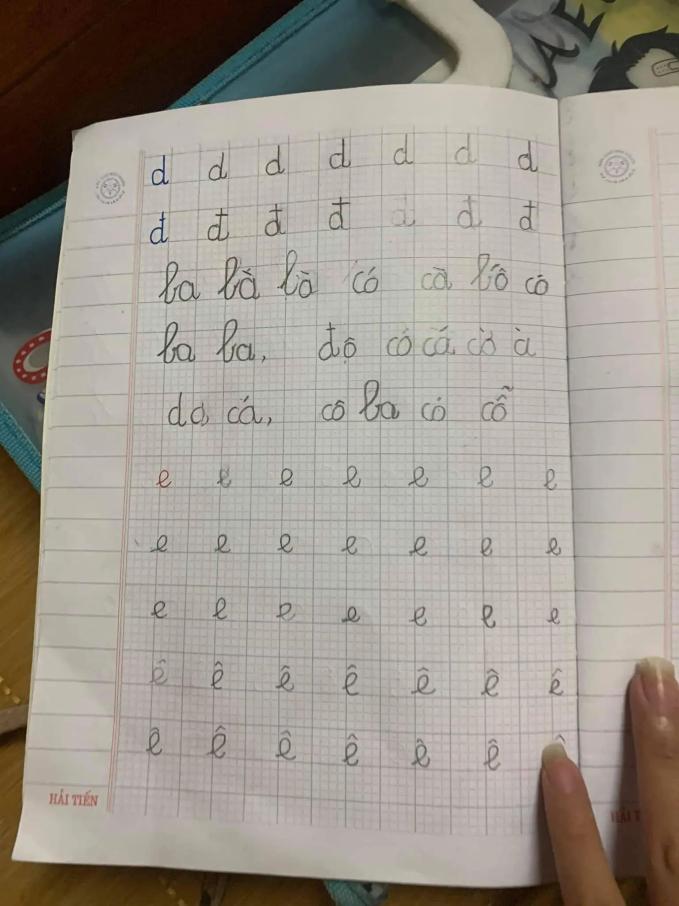 d d d d d d d
đ đ đ đ đ đ đ
ba bà bò có cà bô cỏ
ba ba, đọ có cá cờ à
da cá, cô ba có cỗ
e e e e e e e
e e e e e e e
e e e e e e e
ê ê ê ê ê ê ê
ê ê ê ê ê ê
HẢI TIẾN